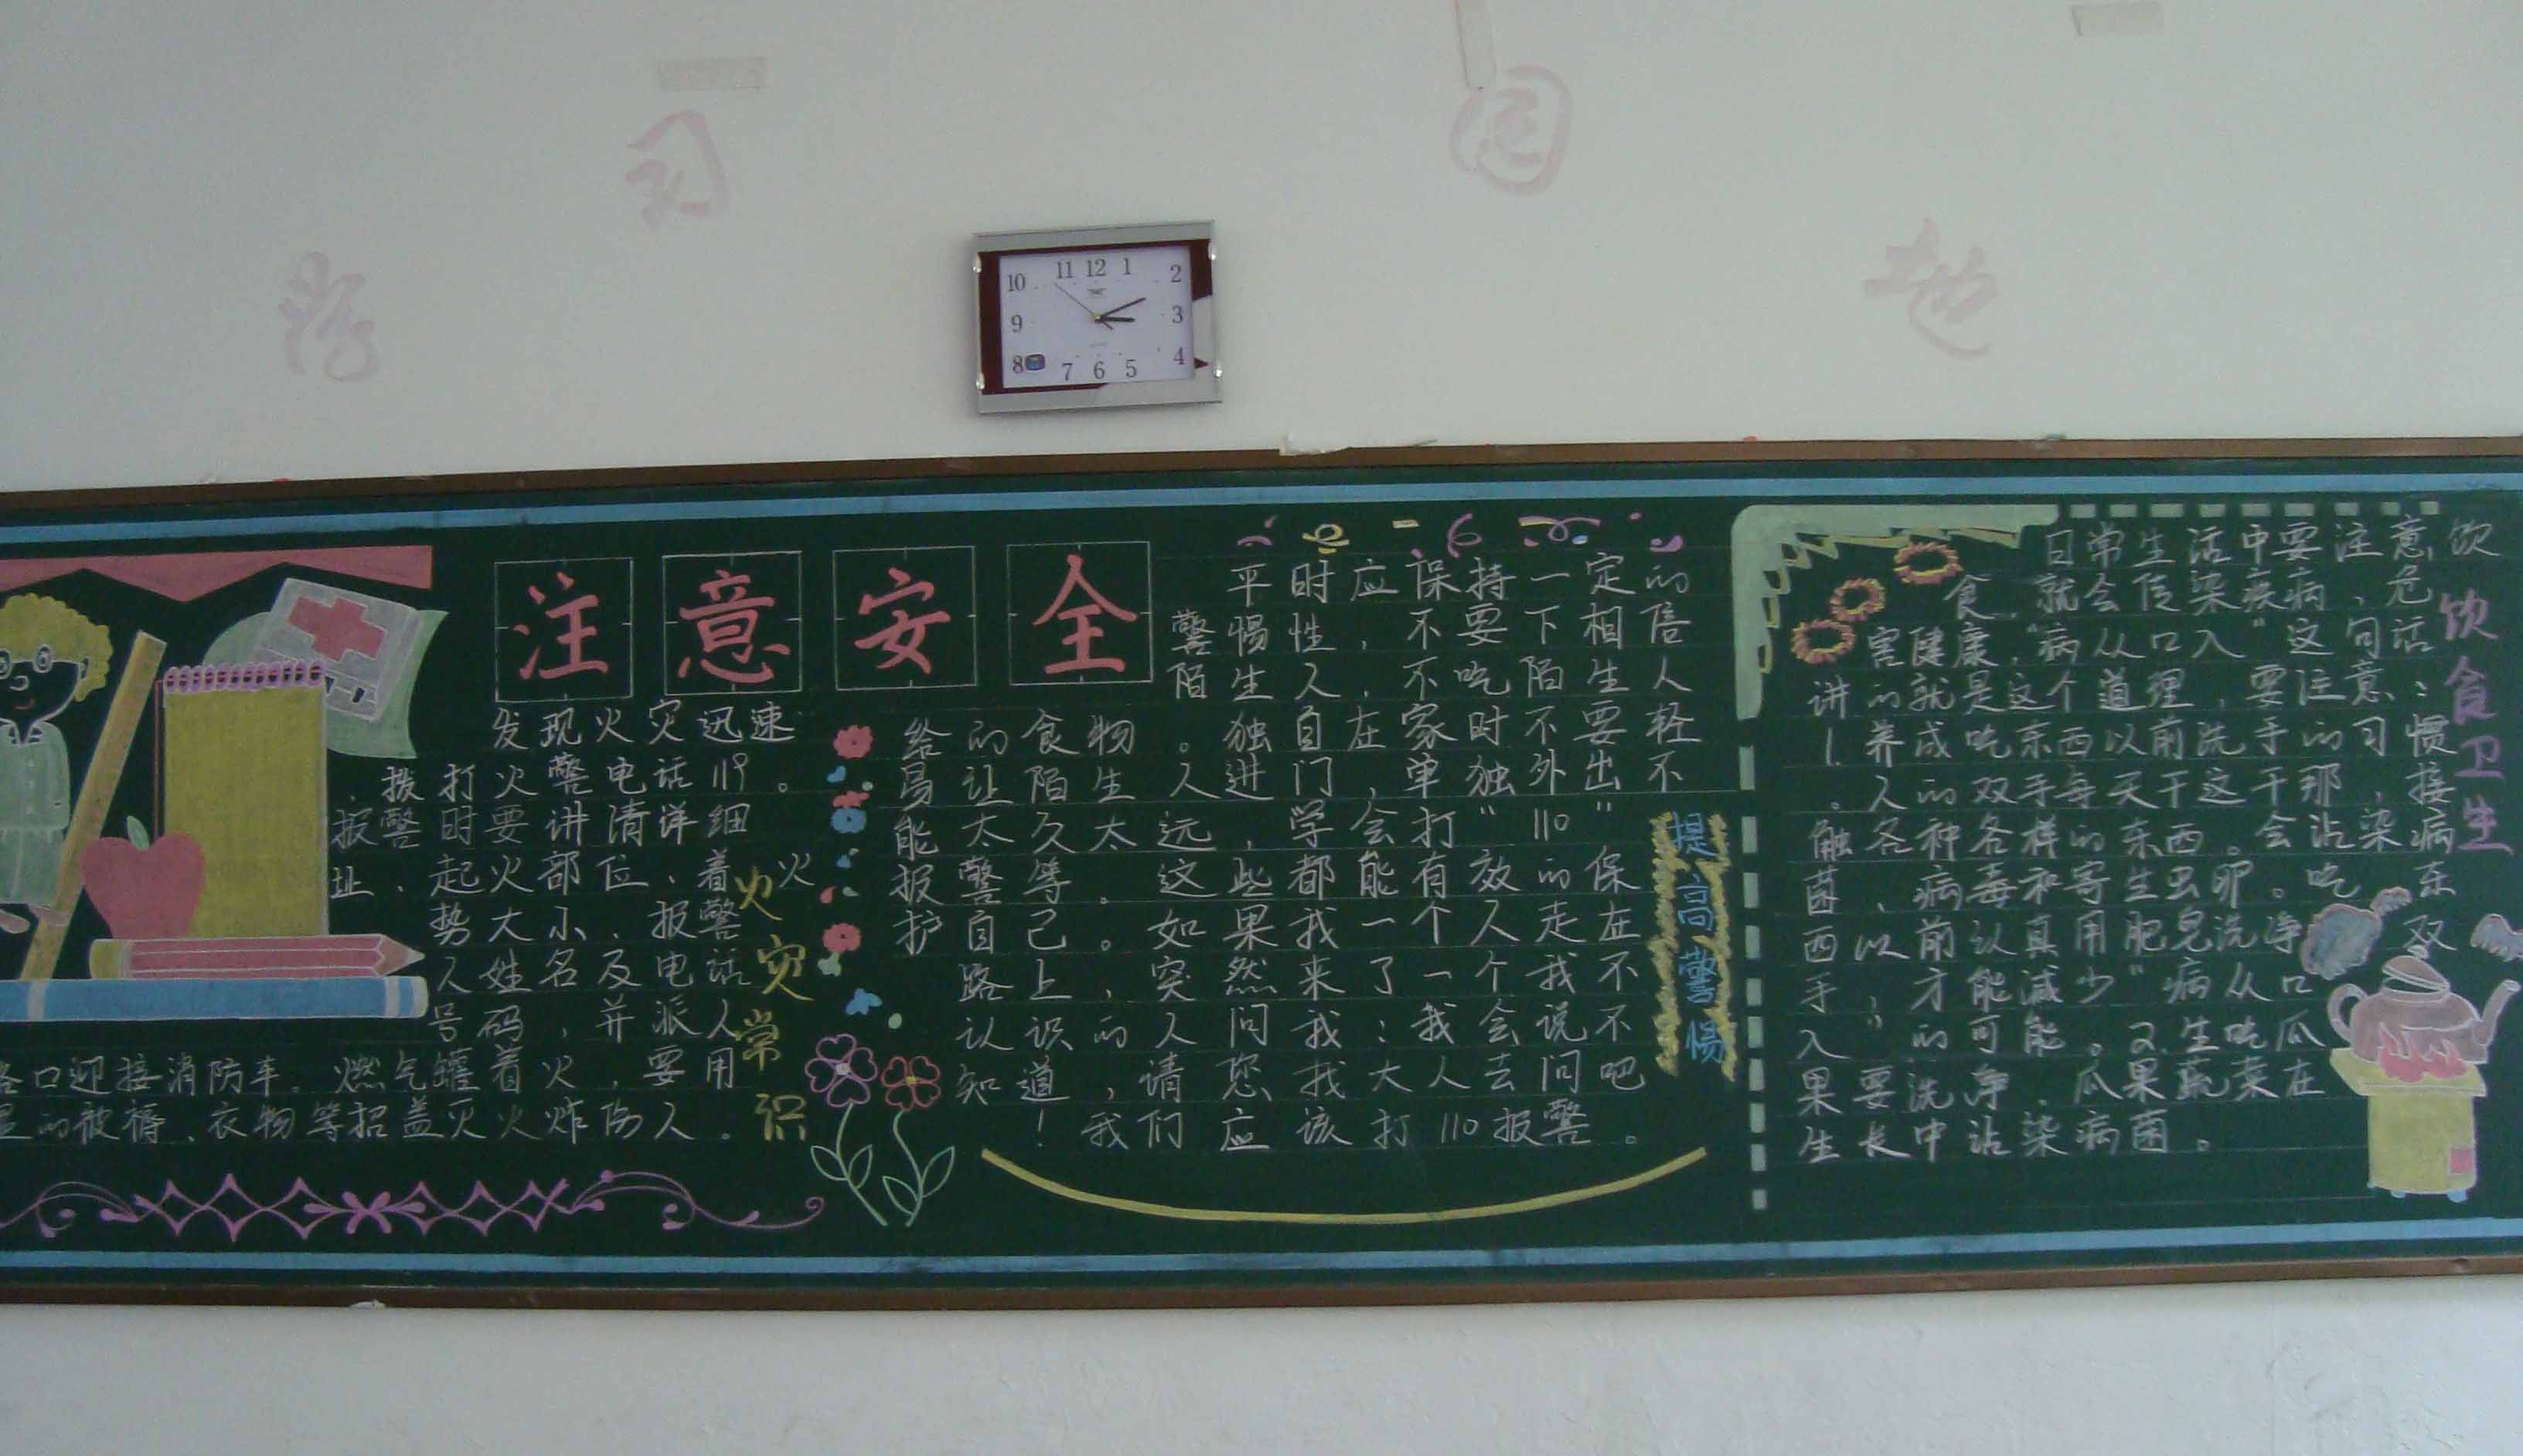 学习园地
11 12 1
10 2
9 3
8 4
7 6 5
注意安全
发现火灾迅速
拨打火警电话119。
报警时要讲清详细
址、起火部位、着火
势大小、报警
人姓名及电话
号码,并派人
路口迎接消防车。燃气罐着火,要用
的被褥、衣物等招盖灭火炸伤人。
火灾常识
平时应保持一定的
警惕性,不要下相信
陌生人,不吃陌生人
给的食物。独自在家时不要轻
易让陌生人进门,单独外出不
能太久太远,学会打"110"
报警等。这些都能有效的保
护自己。如果我一个人走在
路上,突然来了一个我不
认识的人问我:我会说不
知道,请您找大人去问吧
!我们应该打110报警。
提高警惕
日常生活中要注意饮
食,就会传染疾病,危
害健康,"病从口入"这句话
讲的就是这个道理,要注意:
1.养成吃东西以前洗手的习惯
。人的双手每天干这干那,接
触各种各样的东西。会沾染病
菌、病毒和寄生虫卵。吃东
西以前认真用肥皂洗净双
手,才能减少"病从口
入"的可能。2.生吃瓜
果要洗净,瓜果蔬菜在
生长中沾染病菌。
饮食卫生